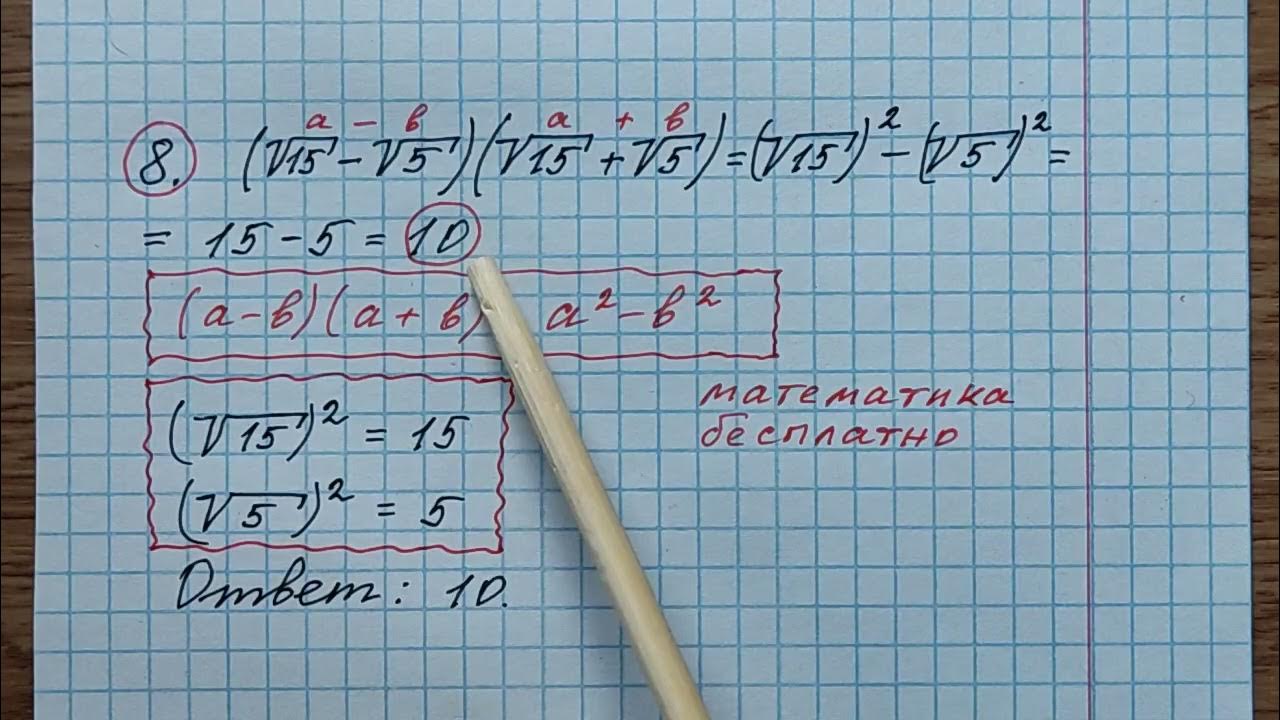 а − в а + в
8. (√15 − √5)(√15 + √5) = (√15)² − (√5)² =
= 15 − 5 = 10
(а − в)(а + в) а² − в²
(√15)² = 15
(√5)² = 5
математика
бесплатно
Ответ: 10.